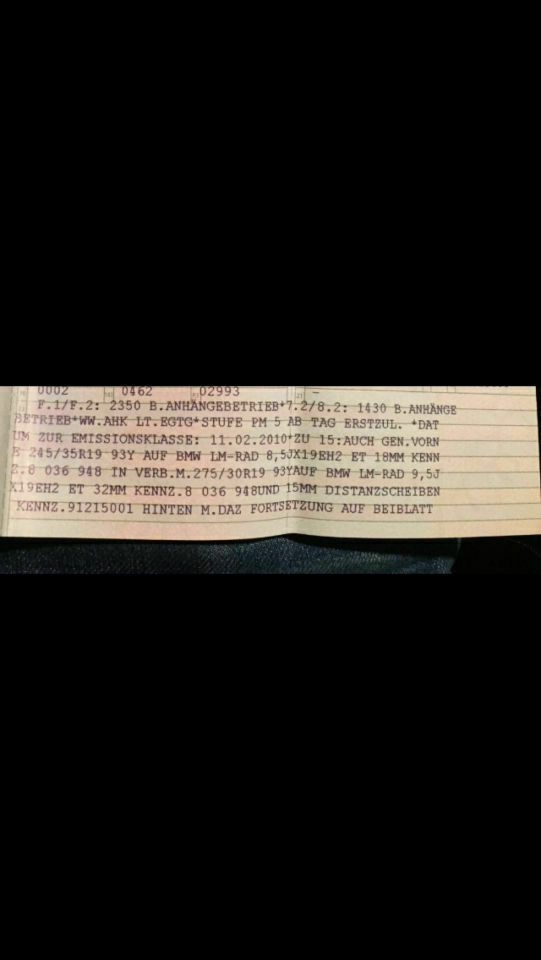 0002 0462 02993 –
F.1/F.2: 2350 B.ANHÄNGEBETRIEB*7.2/8.2: 1430 B.ANHÄNGE
BETRIEB*WW.AHK LT.EGTG*STUFE PM 5 AB TAG ERSTZUL. *DAT
UM ZUR EMISSIONSKLASSE: 11.02.2010*ZU 15:AUCH GEN.VORN
E 245/35R19 93Y AUF BMW LM-RAD 8,5JX19EH2 ET 18MM KENN
Z.8 036 948 IN VERB.M.275/30R19 93YAUF BMW LM-RAD 9,5J
X19EH2 ET 32MM KENNZ.8 036 948UND 15MM DISTANZSCHEIBEN
KENNZ.91215001 HINTEN M.DAZ FORTSETZUNG AUF BEIBLATT